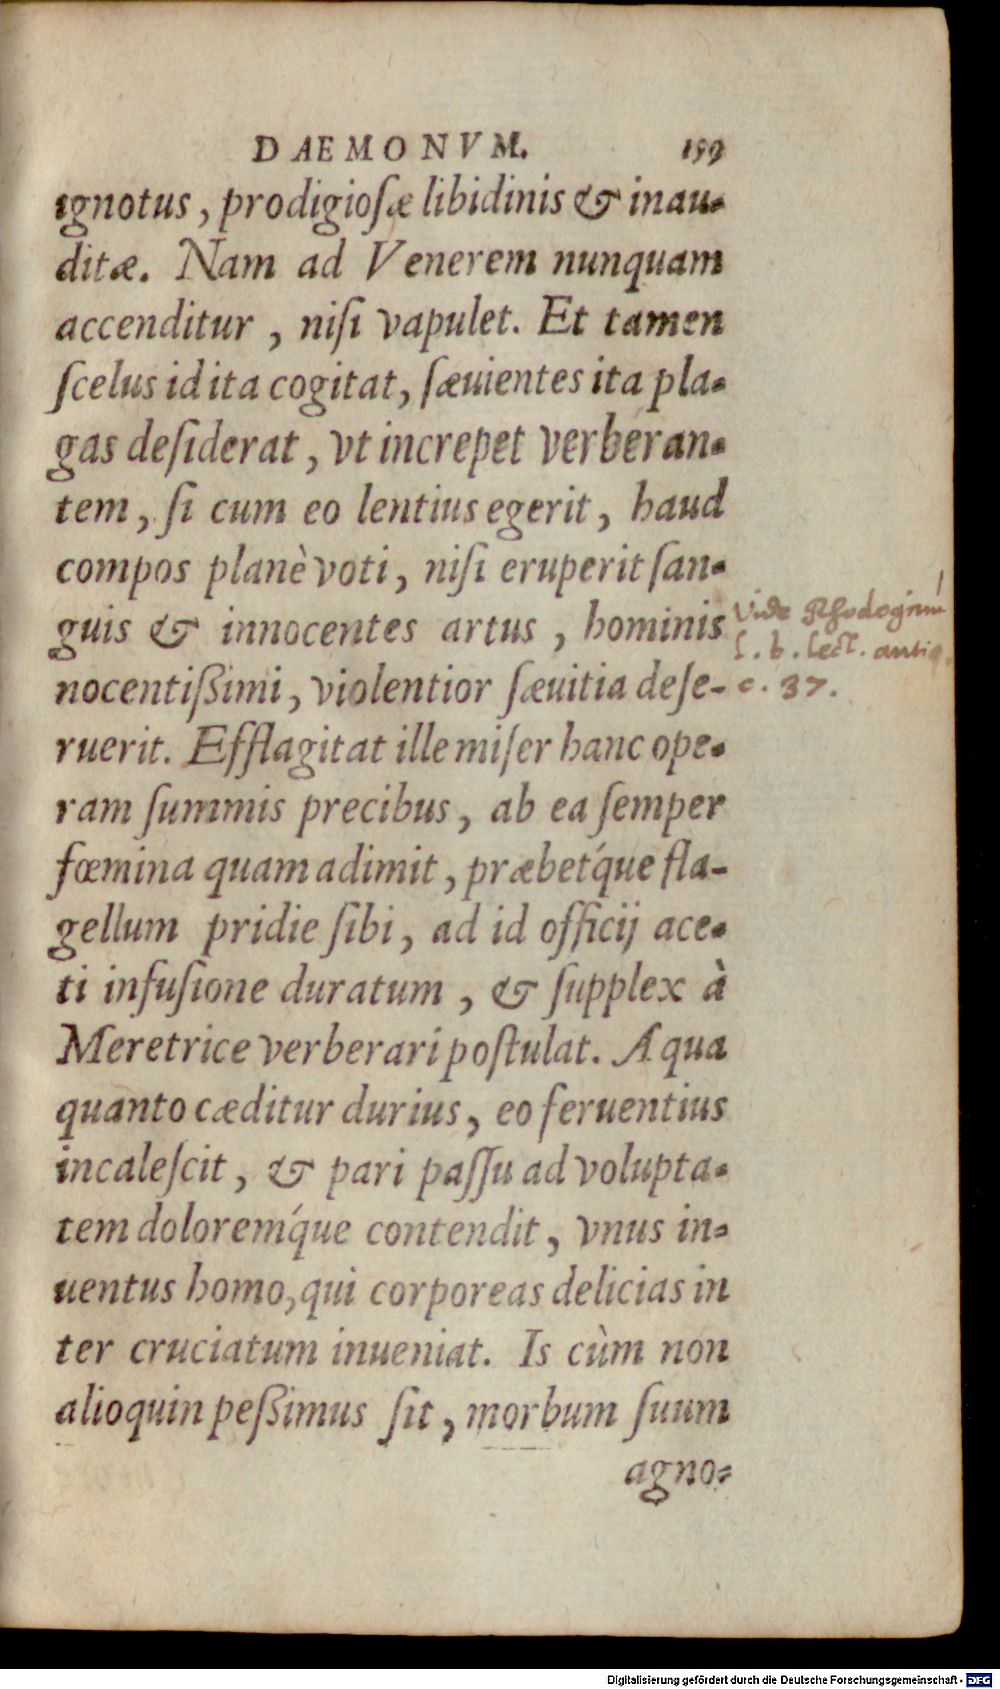 DAEMONVM. 159
ignotus, prodigioſæ libidinis & inau-
ditæ. Nam ad Venerem nunquam
accenditur, niſi vapulet. Et tamen
ſcelus id ita cogitat, ſæuientes ita pla-
gas deſiderat, vt increpet verberan-
tem, ſi cum eo lentius egerit, haud
compos planè voti, niſi eruperit ſan-
guis & innocentes artus, hominis
nocentiſsimi, violentior ſæuitia deſe-
ruerit. Efflagitat ille miſer hanc ope-
ram ſummis precibus, ab ea ſemper
fœmina quam adimit, præbet́que fla-
gellum pridie ſibi, ad id officij ace-
ti infuſione duratum, & ſupplex à
Meretrice verberari poſtulat. A qua
quanto cæditur durius, eo feruentius
incaleſcit, & pari paſſu ad volupta-
tem doloreḿque contendit, vnus in-
uentus homo, qui corporeas delicias in
ter cruciatum inueniat. Is cùm non
alioquin peſsimus ſit, morbum ſuum
agno-
Vide Rhodoginum
l. b. lect. antiq.
c. 37.
Digitalisierung gefördert durch die Deutsche Forschungsgemeinschaft - DFG